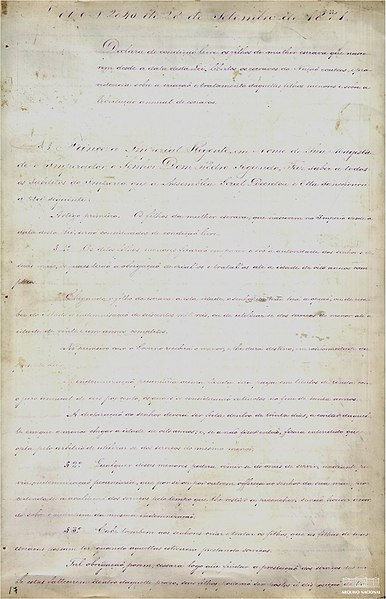 Lei Nº 2040 de 28 de Setembro de 1871.
Declara de condição livre os filhos de mulher escrava que nasce-
rem desde a data desta Lei, libertos os escravos da Nação e outros, e pro-
videncia sobre a criação e tratamento daquelles filhos menores e sobre a
libertação annual de escravos.
A Princeza Imperial Regente, em Nome de Sua Magesta-
de o Imperador o Senhor Dom Pedro Segundo, Faz saber a todos
os Subditos do Imperio que a Assembléa Geral Decretou e Ella Sanccionou
a Lei seguinte:
Artigo primeiro. Os filhos da mulher escrava, que nascerem no Imperio desde a
data desta lei, serão considerados de condição livre.
§ 1.º Os ditos filhos menores ficarão em poder e sob a autoridade dos senhores de
suas mãis, os quaes terão a obrigação de crial-os e tratal-os até a idade de oito annos com-
pletos.
Chegando o filho da escrava a esta idade, o senhor da mãi terá a opção, ou de rece-
ber do Estado a indemnisação de seiscentos mil réis, ou de utilisar-se dos serviços do menor até a
idade de vinte e um annos completos.
No primeiro caso o Governo receberá o menor, e lhe dará destino, em conformidade da
presente lei.
A indemnisação pecuniaria acima fixada será paga em titulos de renda com
o juro annual de seis por cento, os quaes se considerarão extinctos no fim de trinta annos.
A declaração do senhor deverá ser feita dentro de trinta dias, a contar daquel-
le em que o menor chegar á idade de oito annos e, se a não fizer então, ficará entendido que
opta pelo arbitrio de utilisar-se dos serviços do mesmo menor.
§ 2.º Qualquer desses menores poderá remir-se do onus de servir, mediante pré-
via indemnisação pecuniaria, que por si ou por outrem offereça ao senhor de sua mãi, pro-
cedendo-se á avaliação dos serviços pelo tempo que lhe restar a preencher, se não houver accor-
do sobre o quantum da mesma indemnisação.
§ 3.º Cabe tambem aos senhores criar e tratar os filhos que as filhas de suas
escravas possam ter quando aquellas estiverem prestando serviços.
Tal obrigação, porém, cessará logo que findar a prestação dos serviços das
mãis. Se estas fallecerem dentro daquelle prazo, seus filhos poderão ser postos á disposição do
17
ARQUIVO NACIONAL